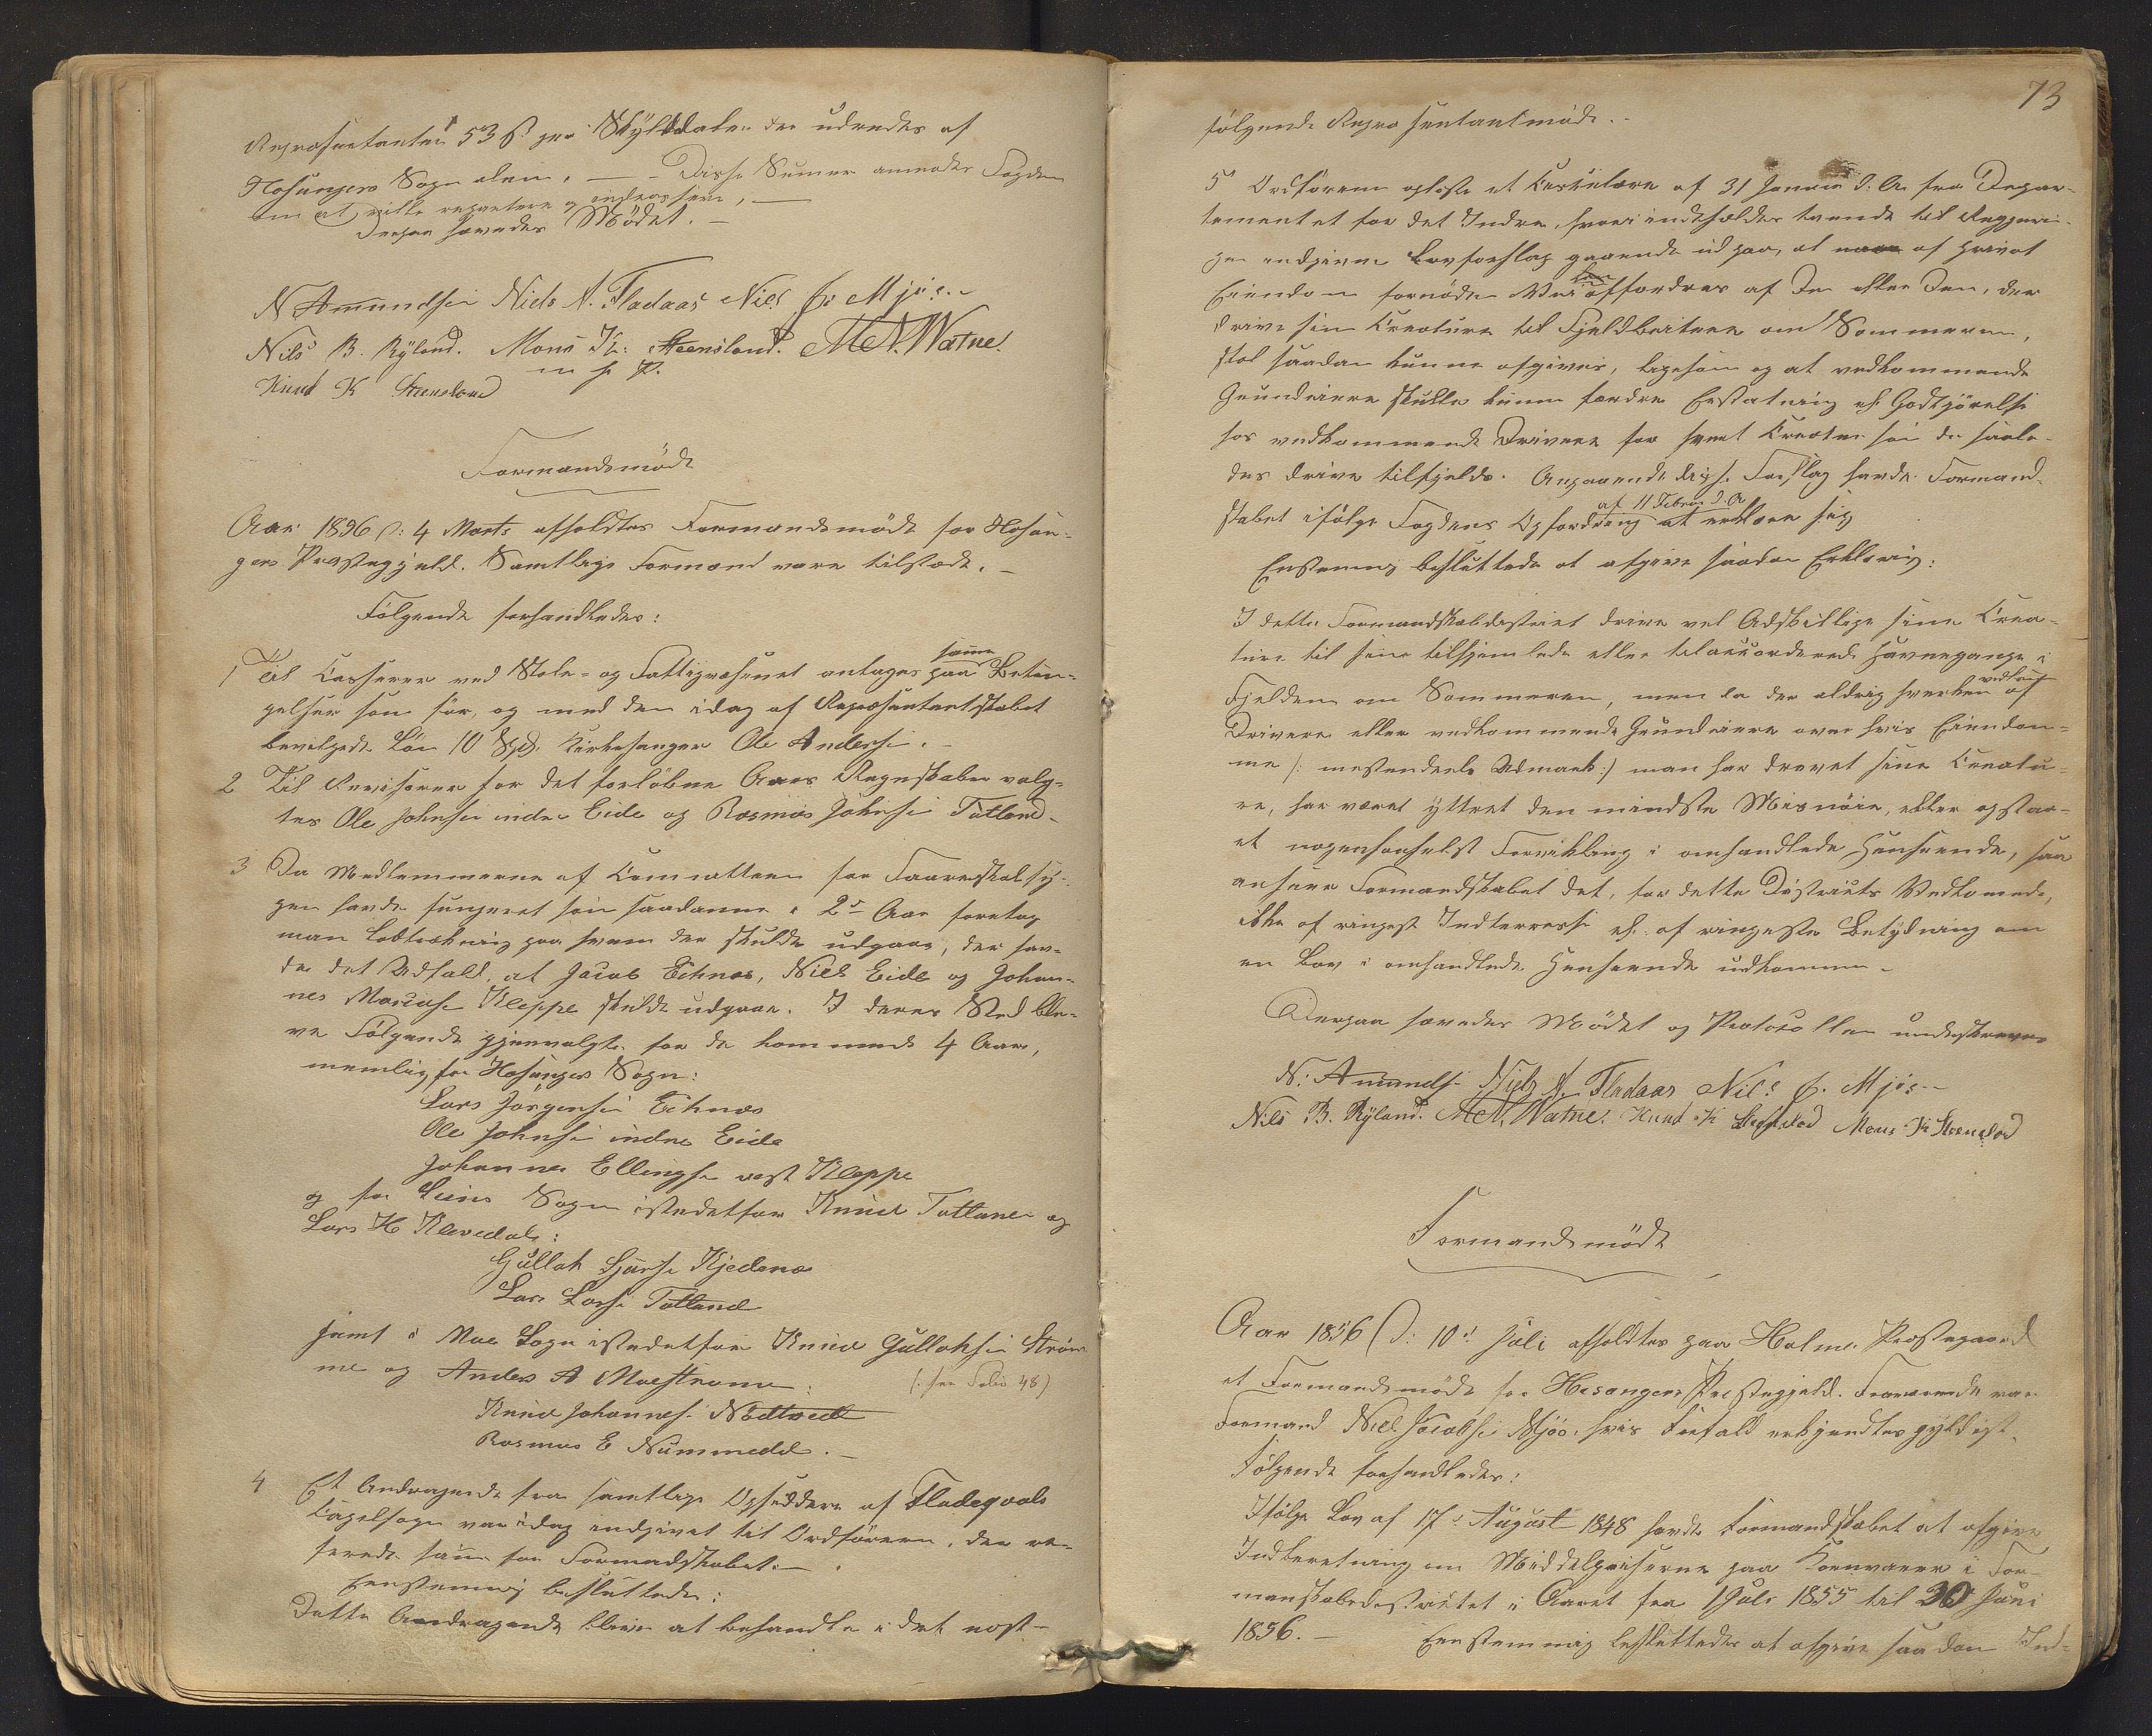 Repræsentanter 53 ß pr: Skylddaler der udredes af
Hosangers Sogn alene. — Disse Summer anmodes Fogden
om at ville repartere og inddrossere, —
Derpaa hævedes Mødet. —
N Amundsen Niels N. Fladaas Niel J: Mjøs.-
Nils B. Ryland. Mons K: Steensland. M N. Watne.
m f P.
Knud K Steensland
Formandsmøde
Aar 1856 d: 4 Marts afholdtes Formandsmøde for Hosan-
gers Præstegjeld. Samtlige Formænd vare tilstæde. —
Følgende forhandledes:
1 Til Casserer ved Skole- og Fattigvæsenet antages paa samme Betin-
gelser som før, og med den idag af Repræsentantskabet
bevilgede Løn 10 Spd. Kirkesanger Ole Andersen. -
2 Til Revisorer for det forløbne Aars Regnskaber valg-
tes Ole Johnsen indre Eide og Rasmus Johnsen Tutland.
3 Da Medlemmerne af Comitteen for Faareskabsy-
gen havde fungeret som saadanne i 2de Aar foretog
man Lodtrækning paa hvem der skulde udgaae, der hav-
de det Udfald, at Jacob Echnæs, Niels Eide og Johan-
nes Marcusen Kleppe skulde udgaae. I deres Sted ble-
ve Følgende gjenvalgte for de kommende 4 Aar,
nemlig for Hosangers Sogn:
Lars Jørgensen Echnæs
Ole Johnsen indre Eide
Johannes Ellingsen vest Kleppe
og for Sogn istedetfor Knud Totland og
Lars H Klevedal:
Gullak Kjedenæs
Lars Larsen Totland
samt i Moe Sogn istedetfor Knud Gullaksen Strøm-
me og Anders A Moestrømme: (: see Folio 48)
Knud Johannes. Nødtvedt
Rasmus E Nummedal. —
4 Et Andragende fra samtlige Opsiddere af Fladeqvals
Capelsogn var idag indgivet til Ordføreren, der re-
fererede samme for Formandskabet. —
Eenstemmig besluttedes:
Dette Andragende bliver at behandle i det næst-
73
følgende Repræsentantmøde. -
5 Ordføreren oplæste et Circulære af 31 Januar d: A. fra Depar-
tementet for det Indre, hvori indeholdes tvende til Regjerin-
gen indgivne Lovforslag gaaende ud paa, at naar af privat
Eiendom fornøden Vei kan affordres af Den eller Dem, der
drive sine Creature til Fjeldbeiterne om Sommeren,
skal saadan kunne afgives, ligesom og at vedkommende
Grundeiere skulle kunne fordre Erstatning el. Godtgjørelse
hos vedkommende Drivere for hvert Creatur som de saale-
des drive tilfjelds. Angaaende disse Forslag havde Formand-
skabet ifølge Fogdens Opfordring af 11 Febru d. A at erklære sig
Enstemmig besluttede at afgive saadan Erklæring:
I dette Formandskabdistrict drive vel Adskillige sine Crea-
ture til sine tilhjemlede eller tilaccorderede Havnegange i
Fjeldene om Sommeren, men da der aldrig hverken af
Drivere eller vedkommende Grundeiere over hvis Eiendom-
me (: mestendeels Udmark:) man har drevet sine Creatu-
re, har været yttret den mindste Misnøie, eller opstaa-
et nogensomhelst Forvikling i omhandlede Henseende, saa
ansees Formandskabet det, for dette Districts Vedkomende,
ikke af ringeste Indterresse el. af ringeste Betydning om
en Lov i omhandlede Henseende udkommer.
Derpaa hævedes Mødet og Protocollen underskreves
N. Amunds. Niels N. Fladaas Nils J. Mjøs.-
Nils B. Ryland. M N. Watne. Knud K Steensland Mons K Steensland
Formandsmøde
Aar 1856 d: 10de Juli afholdtes paa Holme Præstegaard
et Formandsmøde for Hosangers Præstegjeld. Fraværende var
Formand Niel Jacobsen Mjøs, hvis Forfald erkjendtes gyldigt.
Følgende forhandledes:
Ifølge Lov af 17de August 1848 havde Formandskabet at afgive
Indberetning om Middelpriserne paa Kornvarer i For-
manskabsdistrictet i Aaret fra 1 Juli 1855 til 30 Juni
1856. — Eenstemmig besluttedes at afgive saadan Ind-